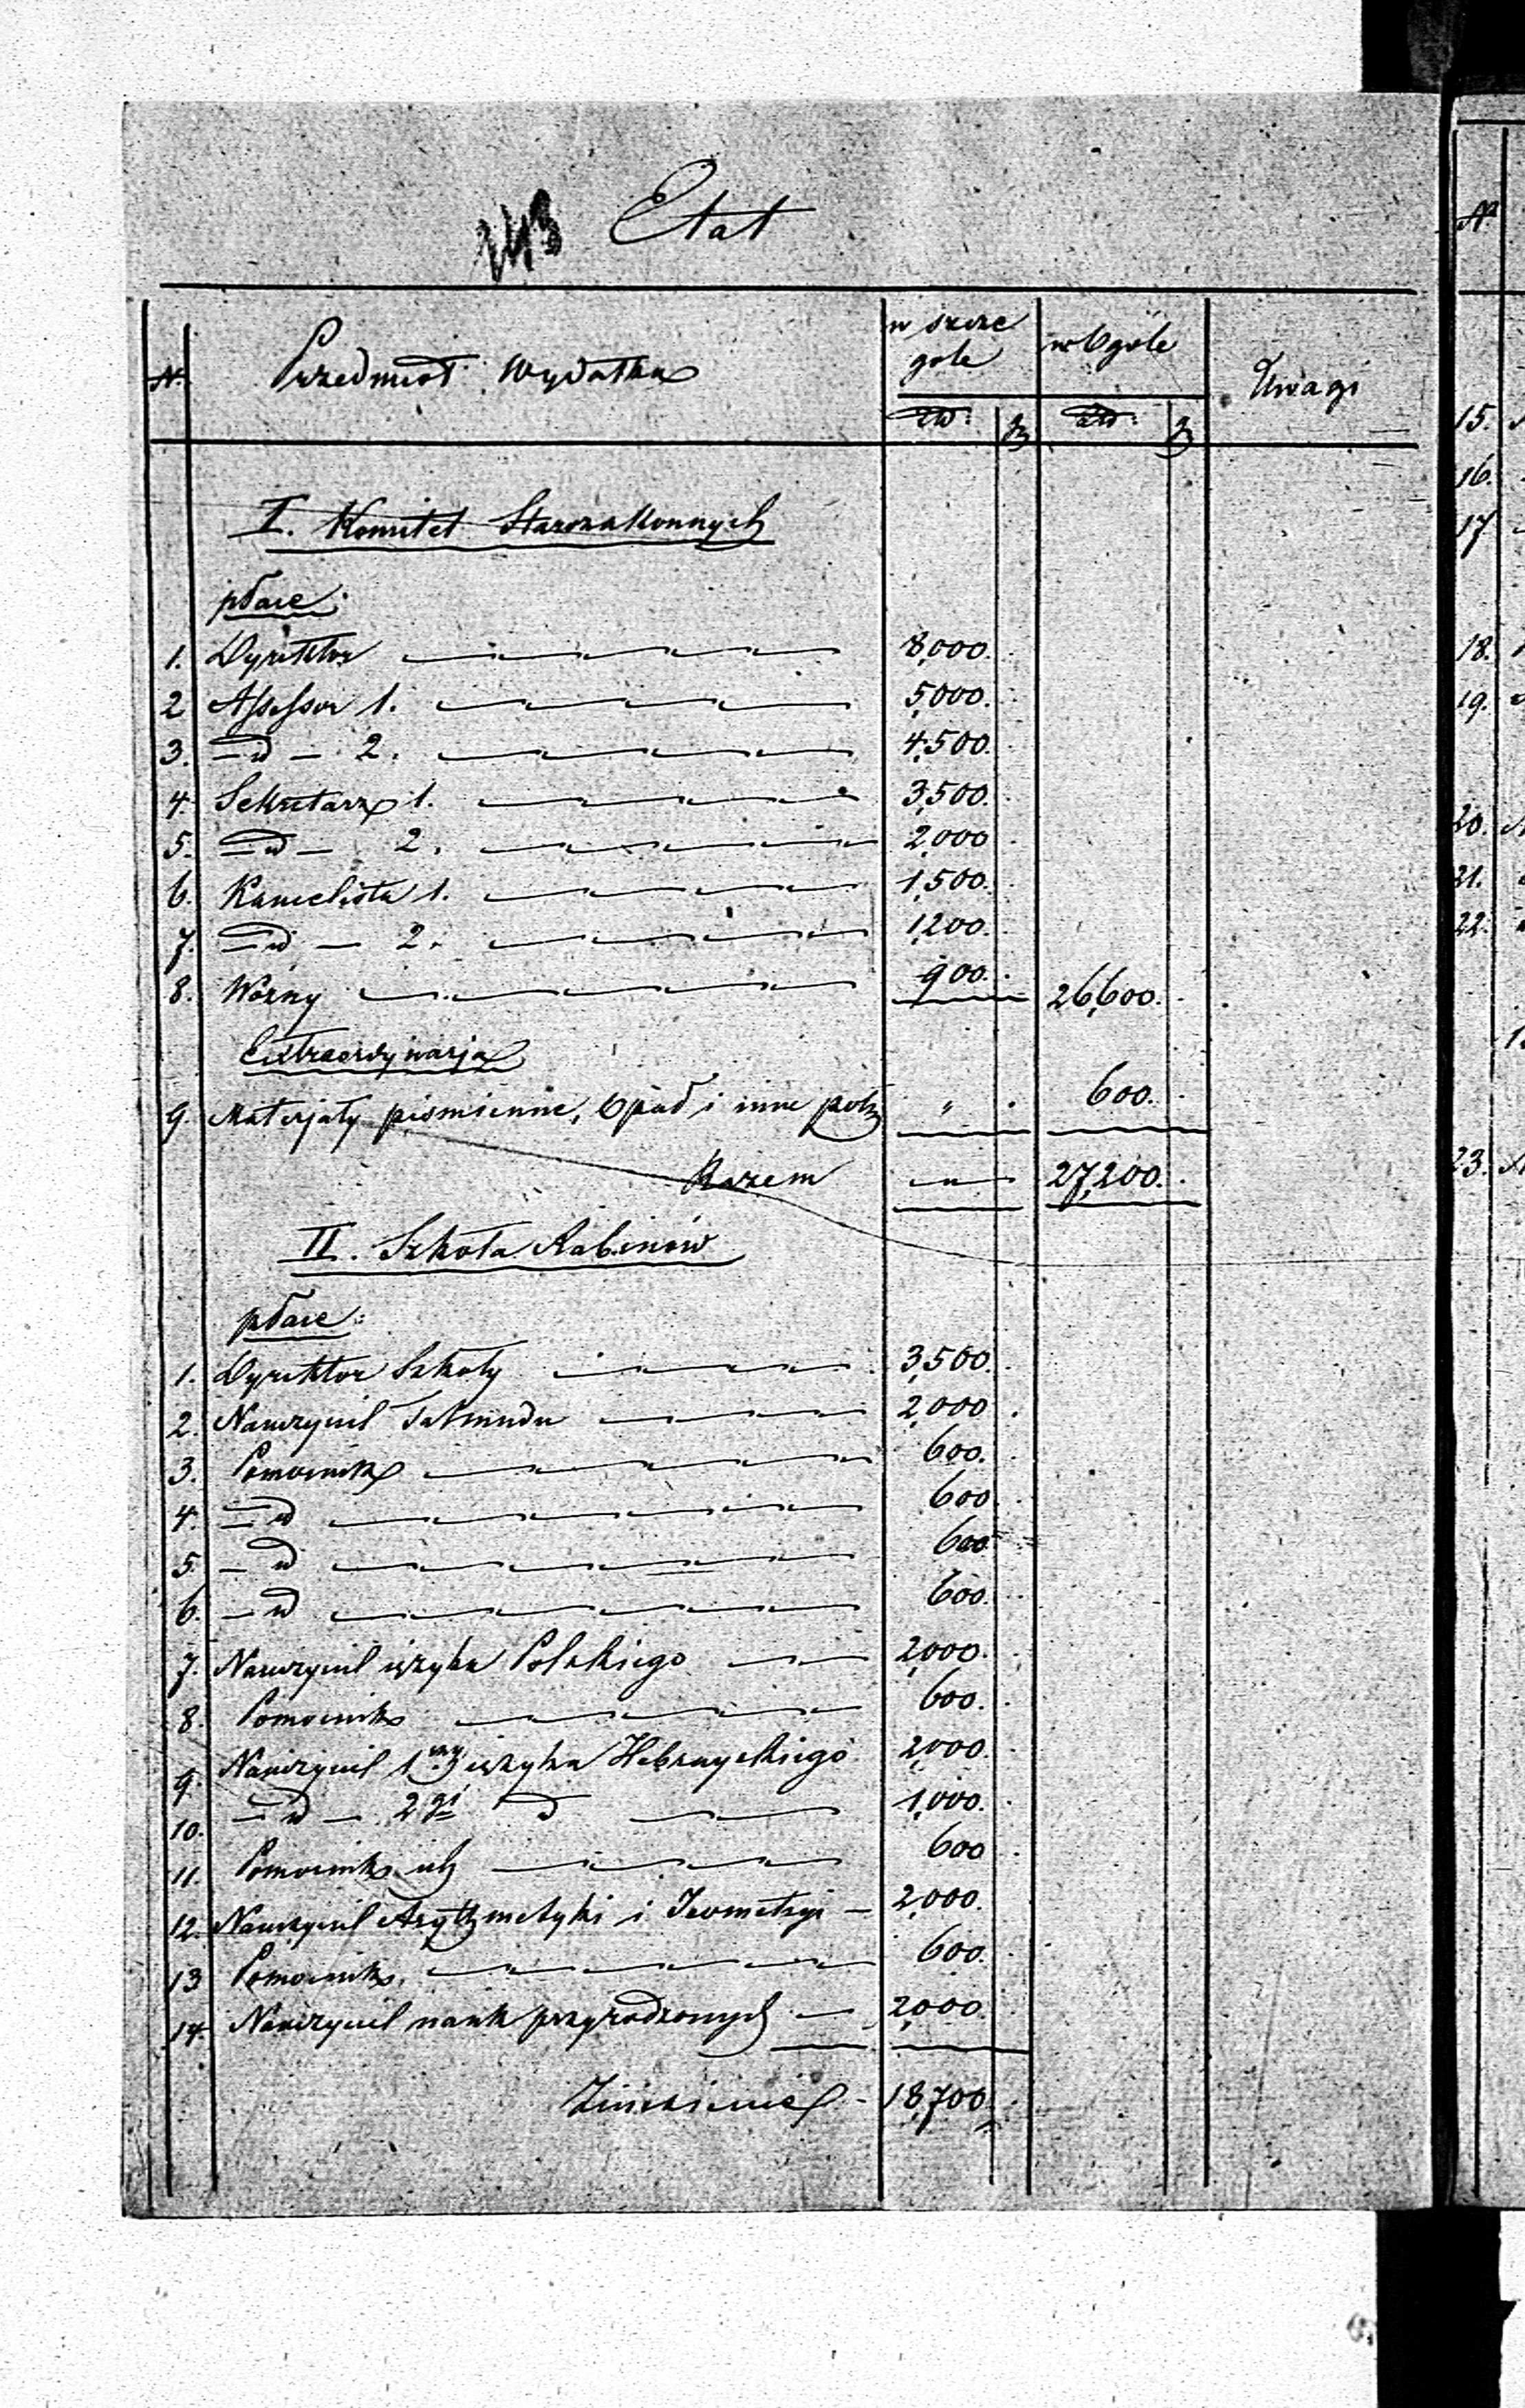 243 Etat
N. Przedmiot Wydatku w szczególe w Ogóle Uwagi
I. Komitet Starozakonnych
płace:
1. Dyrektor 8,000.
2 Assessor 1. 5,000.
3. — d — 2. 4,500.
4. Sekretarz 1. 3,500.
5. — d — 2. 2,000
6. Kancelista 1. 1,500.
7. — d — 2. 1,200.
8. Woźny 900. 26,600.
Extraordynarja
9. Materjały piśmienne, Opał i inne potrz " 600.
Razem — " — 27,200.
II. Szkoła Rabinów
płace:
1. Dyrektor Szkoły 3,500.
2. Nauczyciel Talmudu 2,000
3. Pomocnik 600.
4. — d 600
5. — d 600
6. — d 600.
7. Nauczyciel języka Polskiego 2,000.
8. Pomocnik 600.
9. Nauczyciel 1szy języka Hebrayskiego 2,000.
10. — d — 2gi d 1,000.
11. Pomocnik ich 600
12. Nauczyciel Arytmetyki i Jeometryi — 2,000.
13 Pomocnik 600.
14. Nauczyciel nauk przyrodzonych — 2,000.
18,700
N.
15.
16.
17
18.
19.
20.
21.
22.
23.